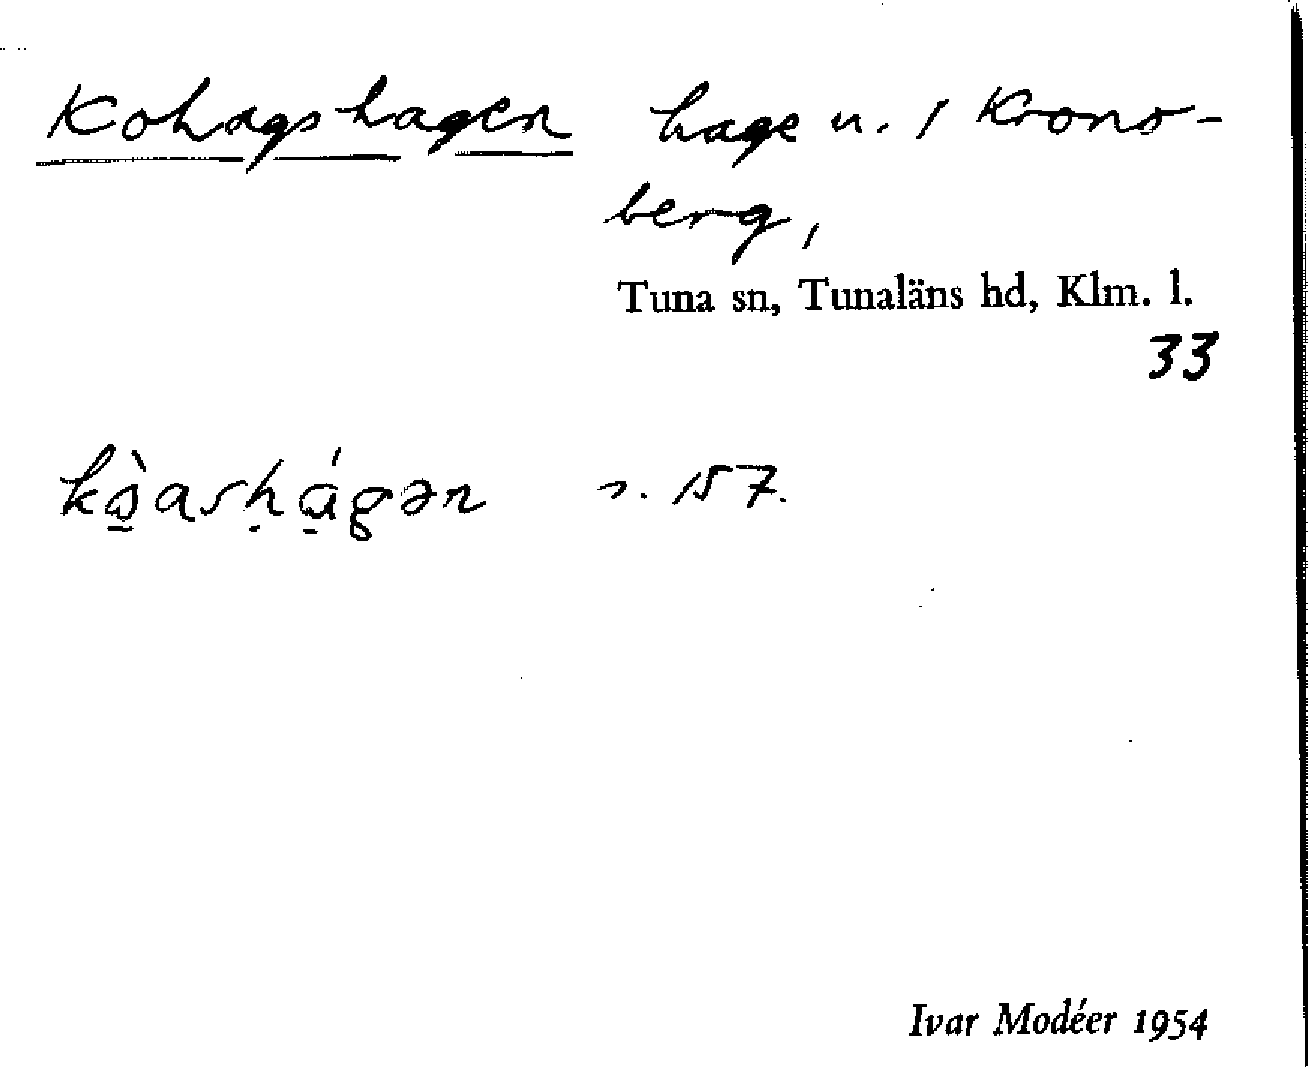 Kohagshagen hage u. / Krono-
berg,
Tuna sn, Tunaläns hd, Klm. l.
33
s. 157.
Ivar Modéer 1954